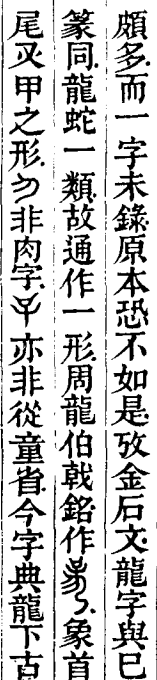 頗多而一字未錄原本恐不如是攷金石文龍字與巳
篆同龍蛇一類故通作一形周龍伯戟銘作象首
尾又甲之形勹非肉字亦非從童省今字典龍下古